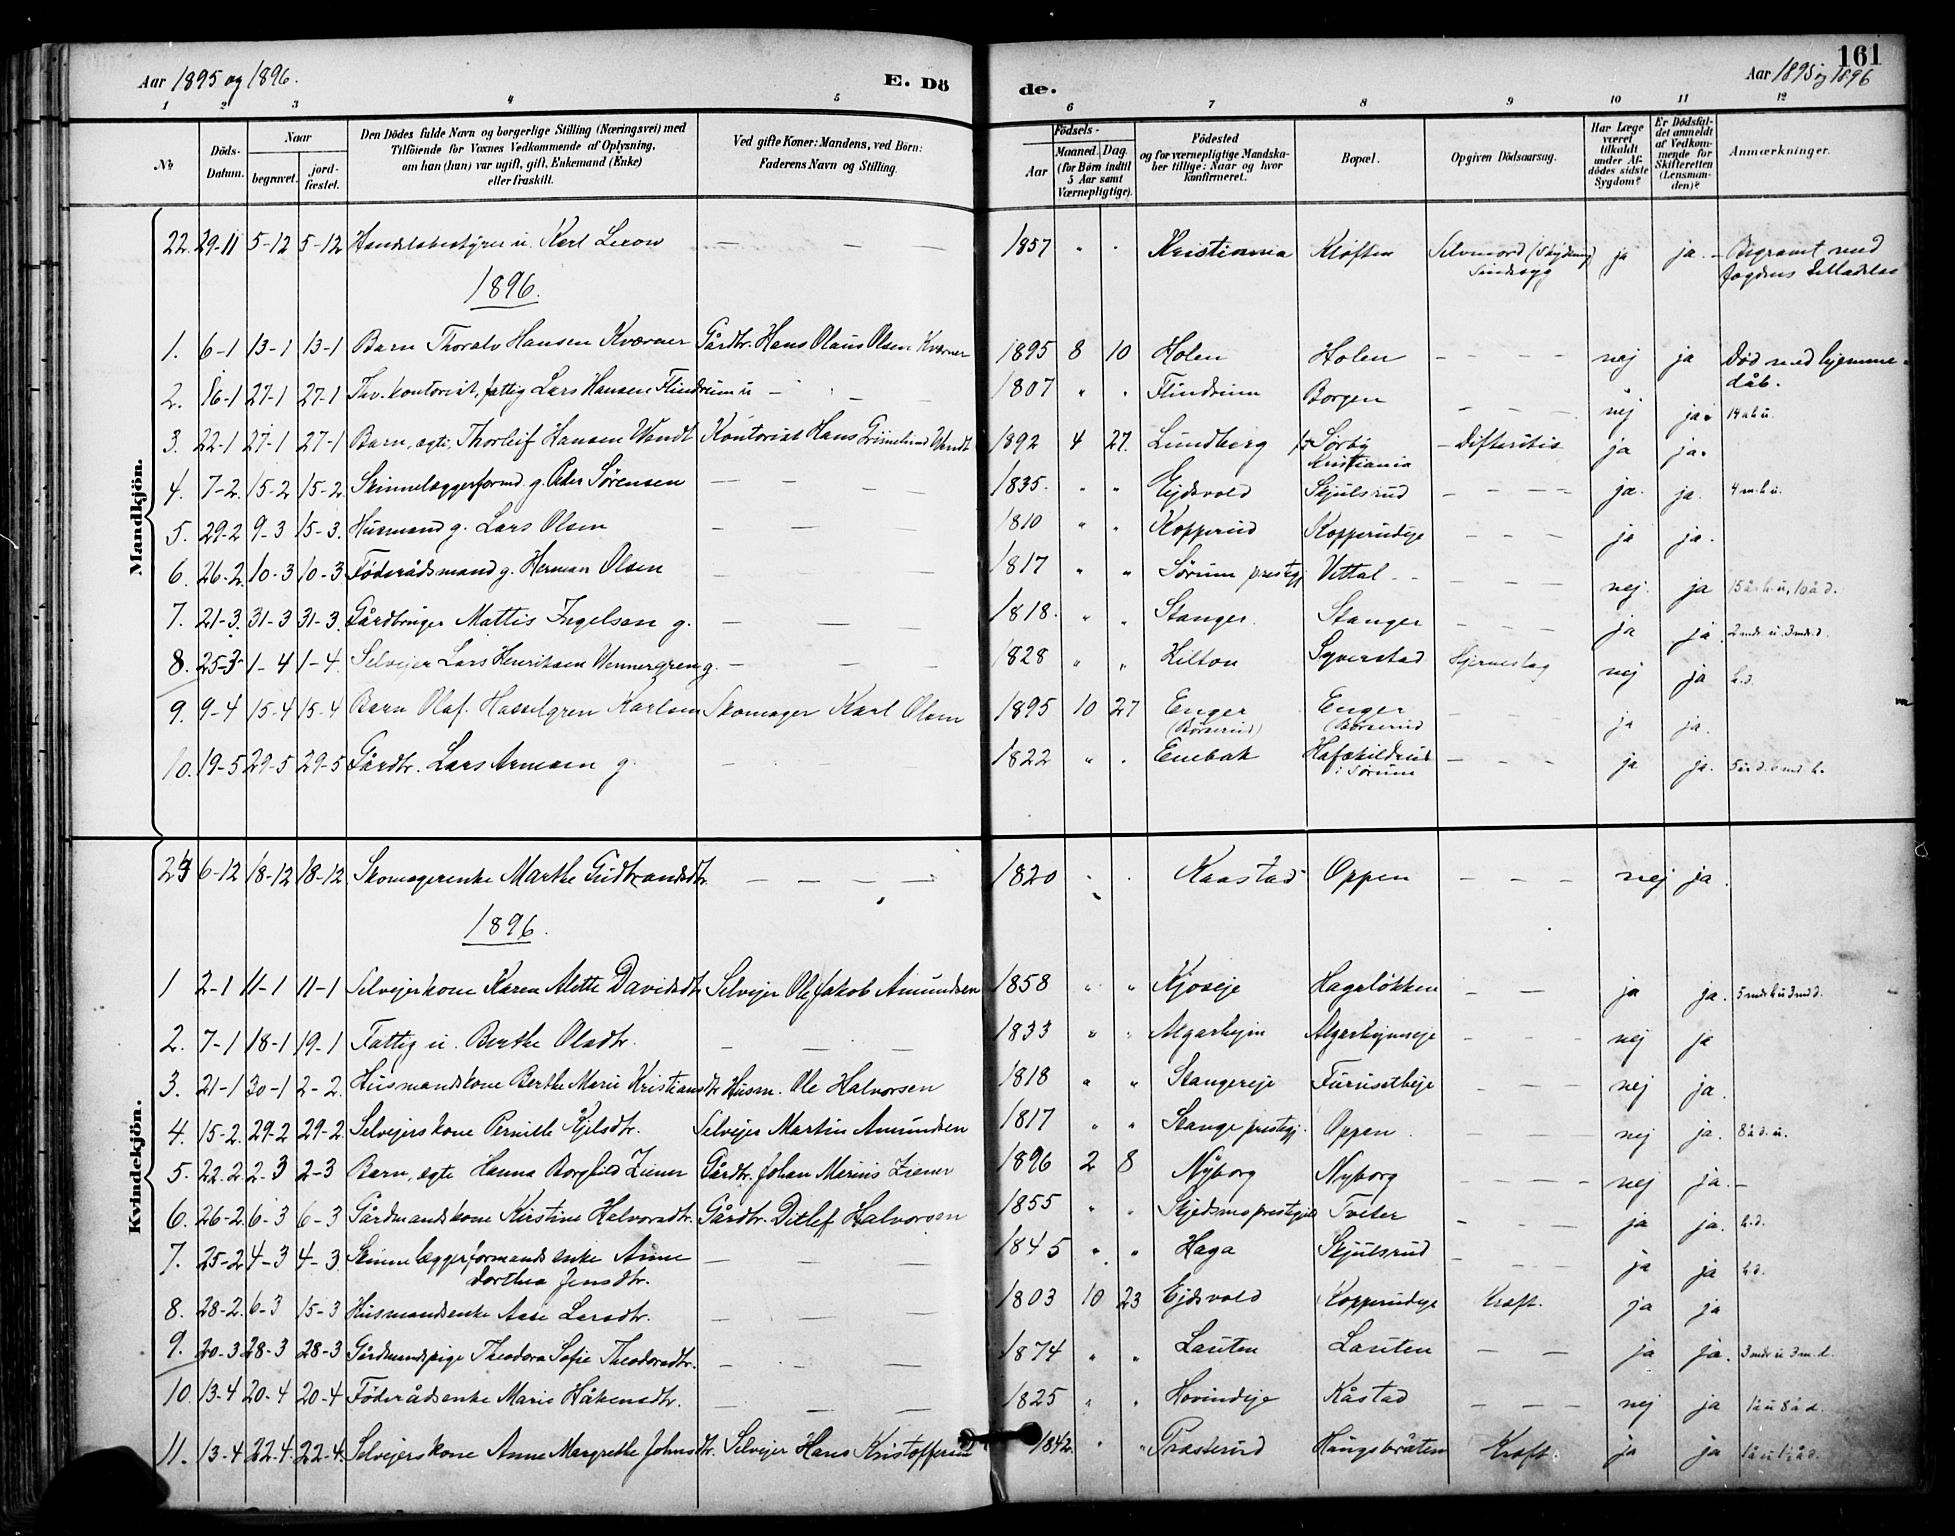 161
Aar 1895 og 1896.
E. Dö
de.
Aar 1895 og 1896
1 2 3 4 5 6 7 8 9 10 11 12
№
Döds-Datum.
Naar
begravet.
jordfæstet.
Den Dödes fulde Navn og borgerlige Stilling (Næringsvei) med
Tilföiende for Voxnes Vedkommende af Oplysning,
om han (hun) var ugift, gift, Enkemand (Enke)
eller fraskilt.
Ved gifte Koner: Mandens, ved Börn:
Faderens Navn og Stilling.
Födsels-
Aar
Maaned. Dag.
(for Börn indtil
5 Aar samt
Værnepligtige).
Födested
og for værnepligtige Mandskaber
tillige: Naar og hvor
konfirmeret.
Bopæl.
Opgiven Dödsaarsag.
Har Læge
været
tilkaldt
under Afdödes
sidste
Sygdom?
Er Dödsfaldet
anmeldt
af Vedkommende
for
Skifteretten
(Lensmanden)?
Anmærkninger.
Mandkjön.
22. 29-11 5-12 5-12 Handelsbestyrer u. Karl Lexow — — — 1857 " " Kristiania Kløften Selvmord (Skydning) Sindssyg ja ja. Begravet med fogdens tilladelse
1896.
1. 6-1 13-1 13-1 Barn Thoralv Hansen Kværner Gårdbr. Hans Olaus Olsen Kværner 1895 8 10 Holen Holen — — — nej ja Død med hjemmedåb.
2. 16-1 27-1 27-1 Fhv. kontorist, fattig Lars Hansen Flindrum u — — — 1807 " " Flindrum Borgen — — — nej ja. 14 a h u.
3. 22-1 27-1 27-1 Barn, egte, Thorleif Hansen Wendt Kontorist Hans Grimelund Wendt 1892 4 27. Lundberg Sørby Kristiania — Difteritis ja ja.
4. 7-2. 15-2 15-2 Skinnelæggerformd. g. Peder Sørensen — — — 1835. " " Ejdsvold Skjulsrud — — — ja. ja. 4 m. h u.
5. 29-2 9-3 15-3. Husmand g. Lars Olsen — — — 1810 " " Kopperud Kopperudeje — — — ja ja.
6. 26-2. 10-3 10-3 Føderådsmand g. Herman Olsen — — — 1817 " " Sørum prestegj. Vittal — — — nej. ja 15 år h. u, 10 å d.
7. 21-3. 31-3 31-3. Gårdbruger Mattis Ingelsen g. — — — 1818. " " Stanger. Stanger — — — ja ja 2 mdr u. 3 mdr. d.
8. 25-3 1-4 1-4. Selvejer Lars Henriksen Wennergren g. — — — 1828 " " Hilton Syverstad Hjerneslag nej ja h. d.
9. 9-4 15-4 15-4 Barn Olaf Hasselgren Karlsen Skomager Karl Olsen 1895 10 27 Enger (Børserud) Enger (Børserud — — — ja ja.
10. 19-5 29-5 29-5 Gårdbr. Lars Arnesen g. — — — 1822 " " Enebak Hafskildrud i Sørum — — — ja ja.
Kvindekjön.
6-12 18-12 18-12 Skomagerenke Marthe Gudbrandsdtr. — — — — 1820 " " Kaastad Oppen — — — nej ja.
1896.
1 2-1 11-1 11-1 Selvejerkone Karen Alette Davidsdtr. Selvejer Ole Jakob Amundsen 1858 " " Kjoseje Hagaløkken — — ja ja. 5 mdr h u 3 md d.
2. 7-1 18-1 19-1 Fattig u. Berthe Olsdtr. — — — 1833 " " Algarhejm Algarhejmseje — — — nej ja
3. 21-1 30-1 2-2. Husmandskone Berthe Marie Kristiansdtr. Husm. Ole Halvorsen 1818 " " Stangereje Furusetheje — — nej ja.
4. 15-2. 29-2 29-2. Selvejerskone Pernille Kjelsdtr. Selvejer Martin Amundsen 1817 " " Stange prestegj. Oppen. — — — nej ja. 8 å d. u.
5. 22-2. 2-3 2-3 Barn, egte Hanna Borghild Ziener Gårdbr. Johan Marius Ziener 1896 2 8 Nyborg Nyborg — — — nej ja. —
6. 26-2. 6-3 6-3 Gårdmandskone Kirstine Halvorsdtr. Gårdbr. Ditlef Halvorsen 1855 " " Skjedsmo prestegjeld Tveter — — — ja ja. h. d.
7. 25-2 4-3 4-3. Skinnelæggerformands enke Anne Dorthea Jensdtr. — — — 1845 " " Haga Skjulsrud — — — ja ja h. d.
8. 28-2. 6-3 15-3 Husmandsenke Aase Larsdtr. — — — 1803 10 23 Ejdsvold Kopperudeje Kræft. ja ja
9. 20-3 28-3 28-3 Gårdmandspige Theodora Sofie Theodorsdtr. — — — 1874 " " Lauten Lauten — — — ja ja. 3 mdr u 3 m. d.
10. 13-4 20-4 20-4 Føderådsenke Marie Håkensdtr. — — — 1825 " " Hovindeje Kåstad — — — nej ja 1 å u 8 å d.
11. 13-4 22-4. 22-4. Selvejerskone Anne Margrethe Johnsdtr. Selvejer Hans Kristoffersen 1842 " " Præsterud Haugsbråten Kræft. ja ja